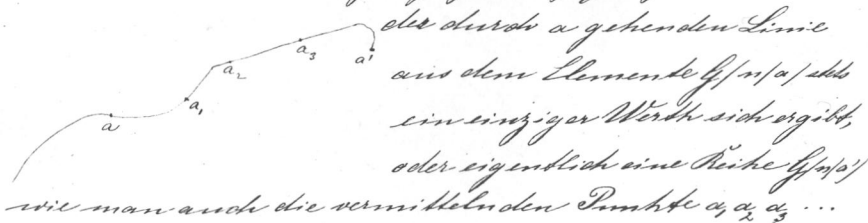 der durch a gehenden Linie
a₂ a₃ a'
aus dem Elemente G/n/a/ stets
a a₁
ein einziger Werth sich ergibt,
oder eigentlich eine Reihe G/n/a'/
wie man auch die vermittelnden Punkte a₁ a₂ a₃ ...